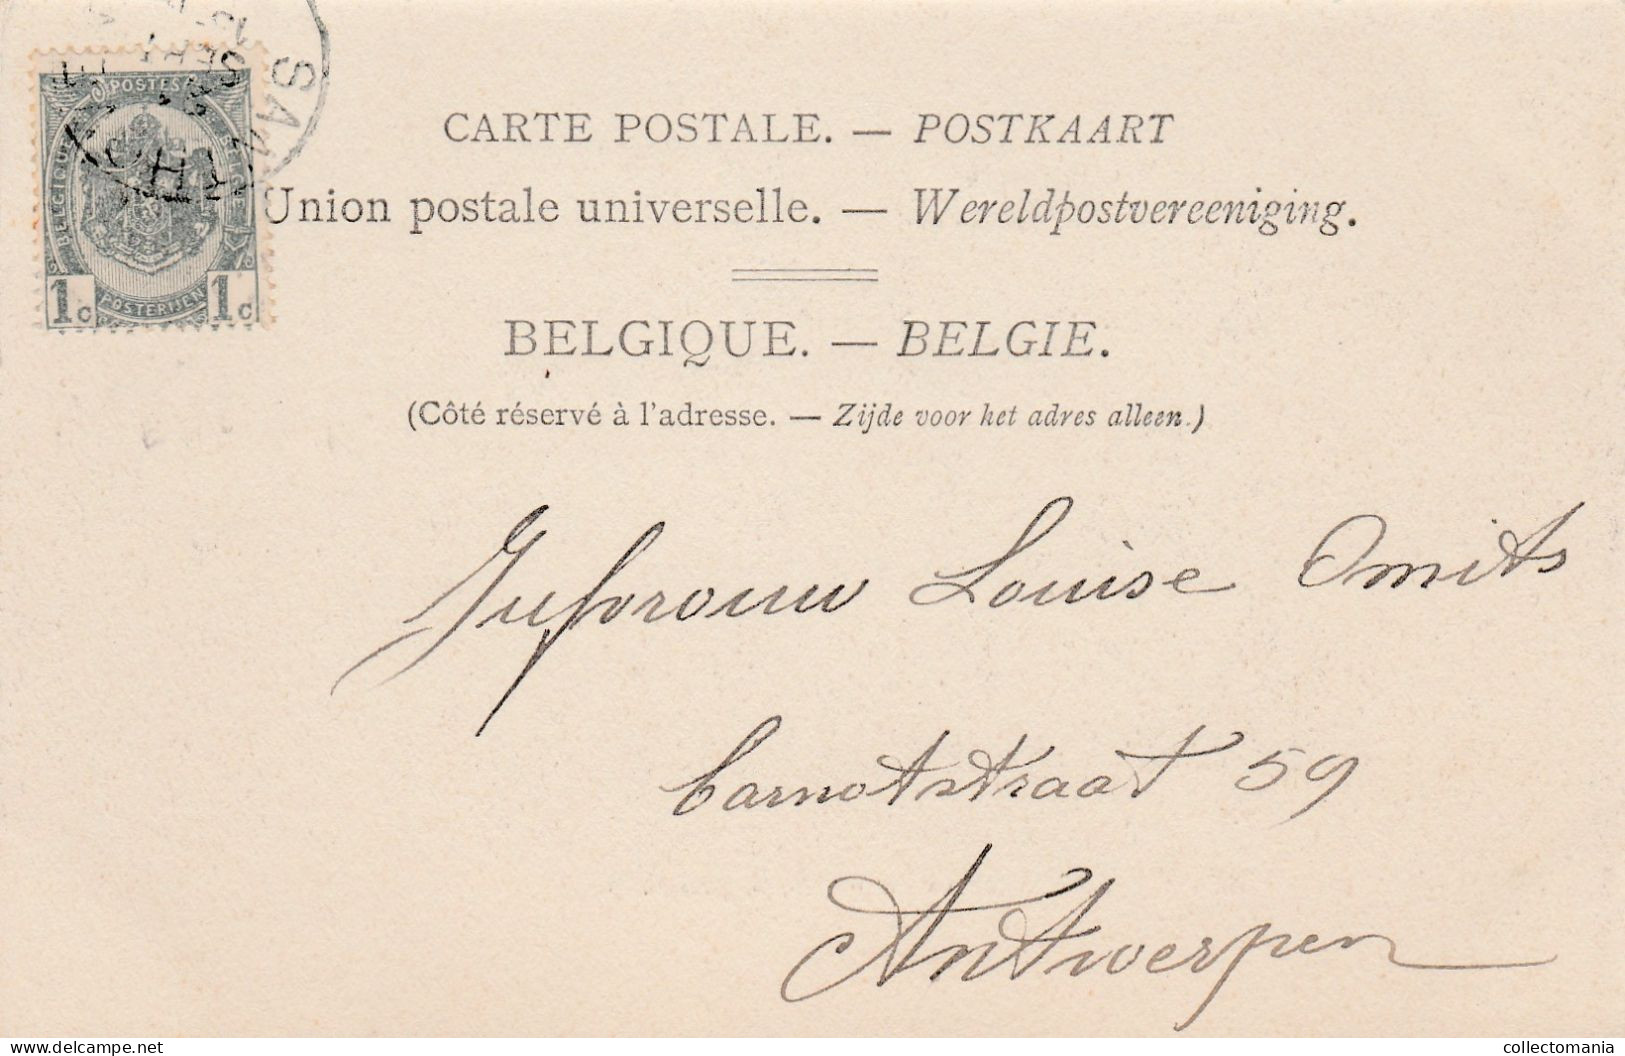 CARTE POSTALE. — POSTKAART
Union postale universelle. — Wereldpostvereeniging.
BELGIQUE. — BELGIE.
(Côté réservé à l'adresse. — Zijde voor het adres alleen.)
POSTES
BELGIQUE
BELGIË
1c 1c
POSTERIJEN
Jufvrouw Louise Omits
Carnotstraat 59
Antwerpen
delcampe.net
collectomania